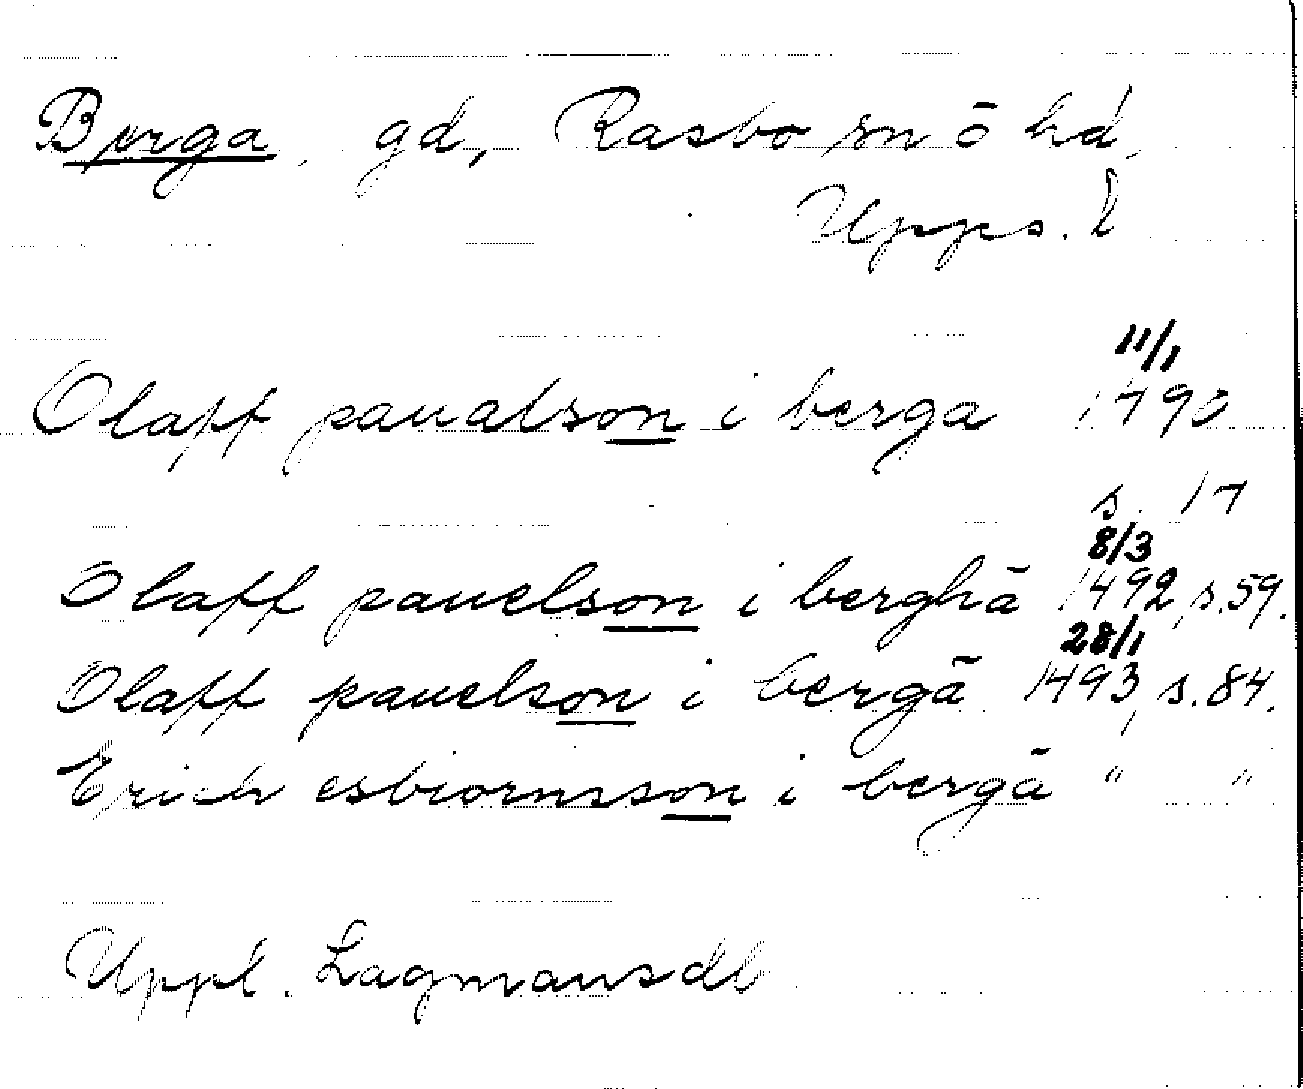 Berga, gd, Rasbo sn ō hd,
Upps. l
11/1
Olaff paualson i berga 1490
s. 17
8/3
Olaff pauelson i berghā 1492, s. 59.
28/1
Olaff pauelson i bergā 1493, s. 84.
Erich esbiornsson i bergā " "
Uppl. Lagmansdb